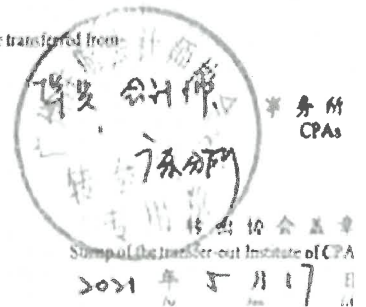 e transferred from
华兴 会计师 事务所
CPAs
广东分所
转出协会盖章
Stamp of the transfer-out Institute of CPA
2021 年 5 月 17 日